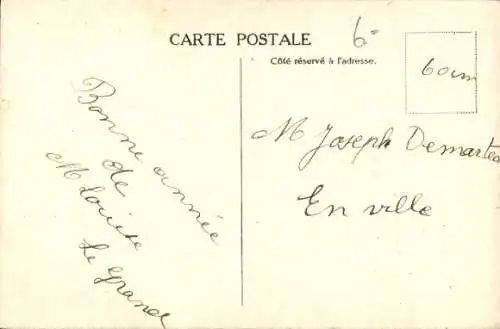 CARTE POSTALE
Côté réservé à l'adresse.
Bonne année
de
M Louise
Le Grand
M Joseph Demarteau
En ville